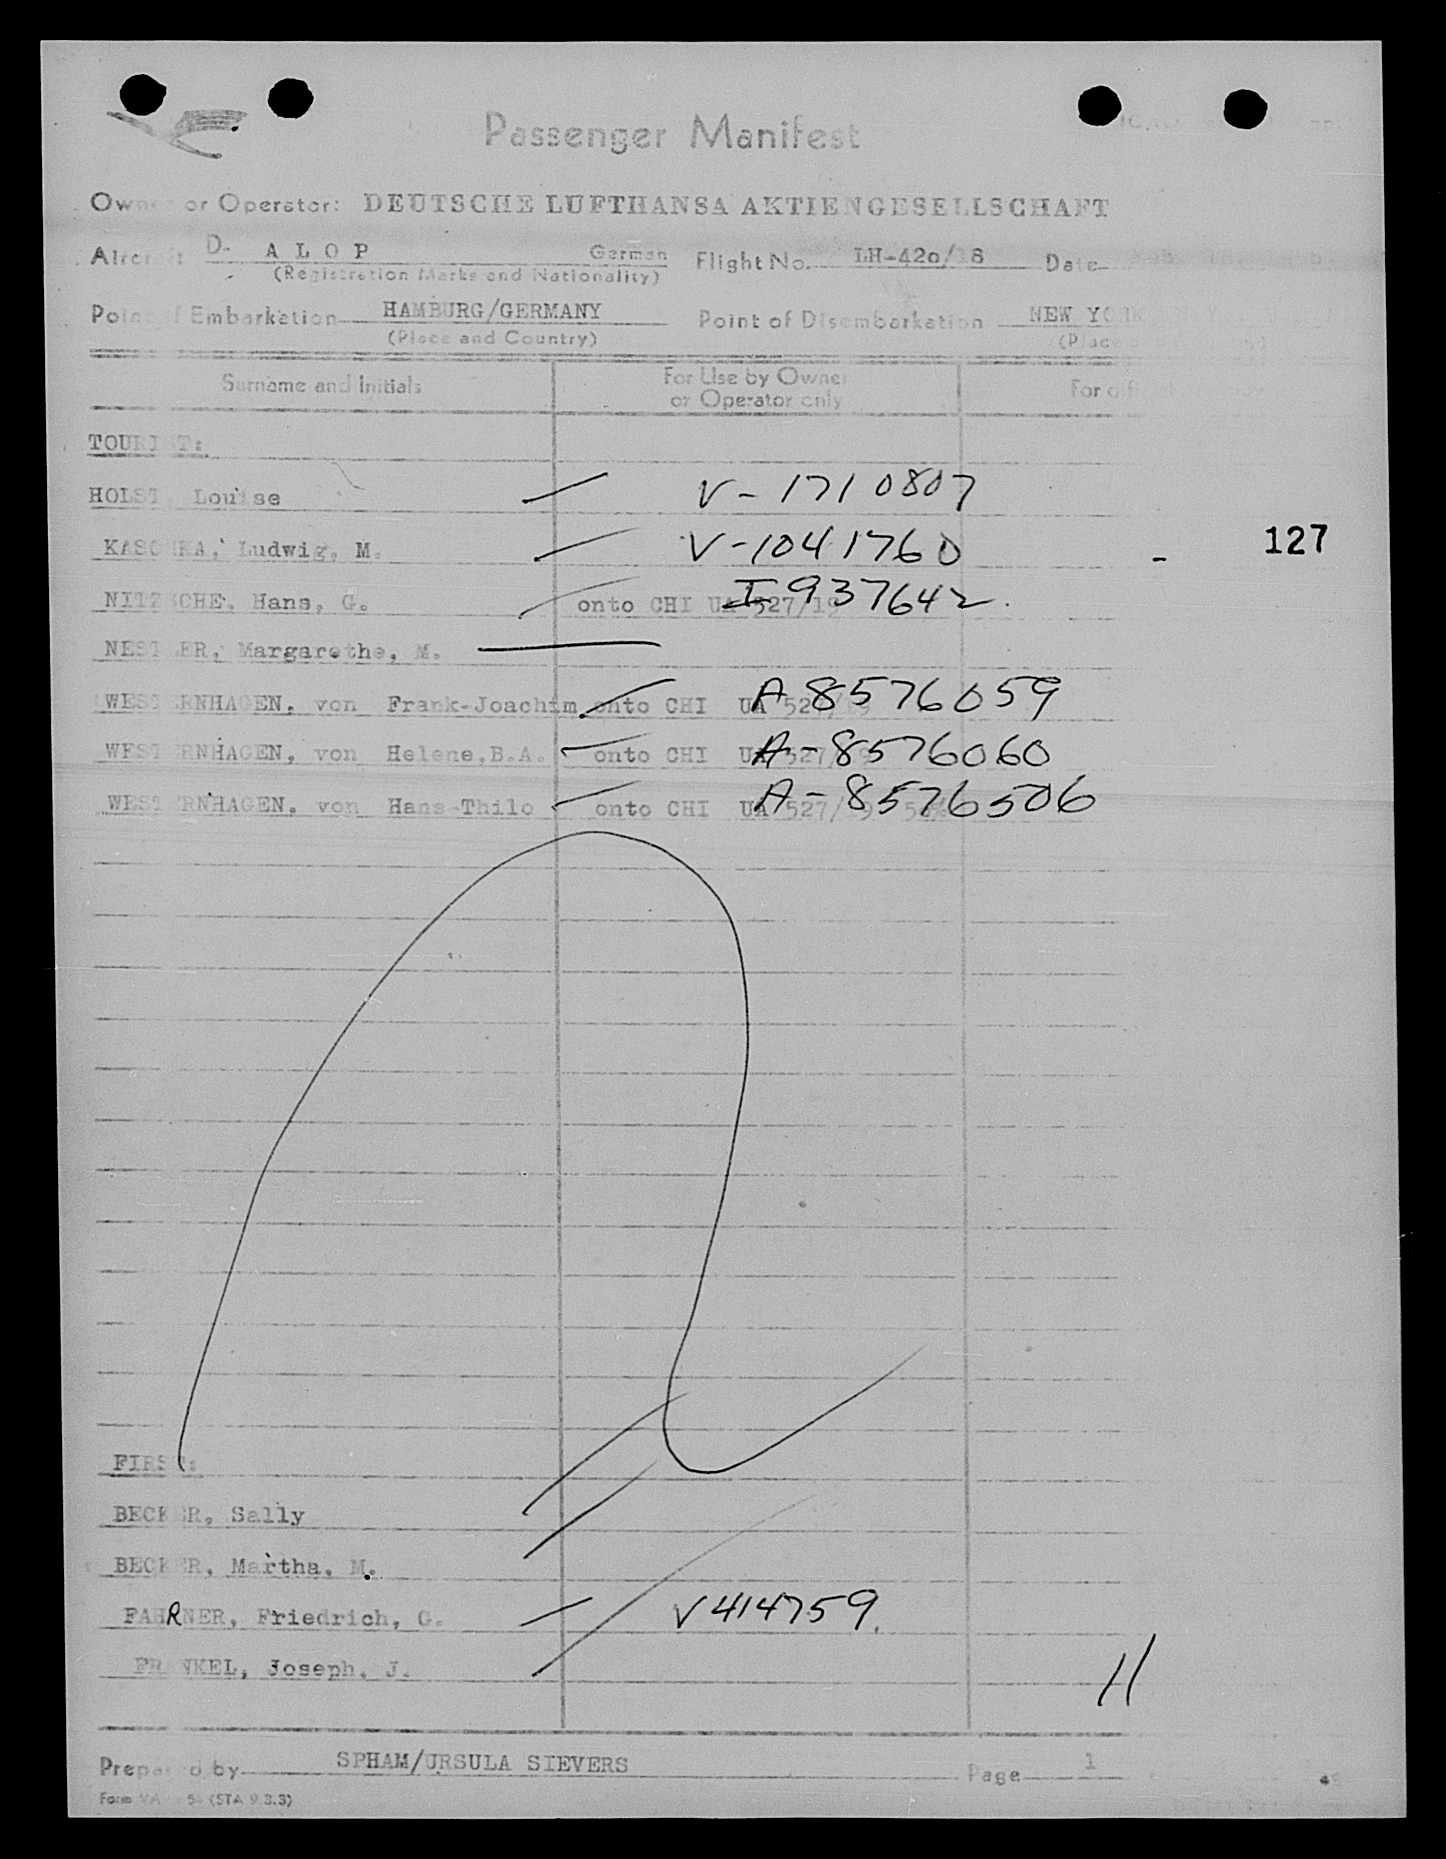 Passenger Manifest
Owner or Operator: DEUTSCHE LUFTHANSA AKTIENGESELLSCHAFT
Aircraft D- A L O P German Flight No. LH-420/18 Date
(Registration Marks and Nationality)
Point of Embarkation HAMBURG/GERMANY Point of Disembarkation NEW YORK
(Place and Country) (Place
Surname and Initials For Use by Owner or Operator only For official
TOURIST:
HOLST, Louise V-1710807
127
KASCHKA, Ludwig, M. V-1041760 -
NITZSCHE, Hans, G. onto CHI UA 527/19 I 937642
NESTLER, Margarethe, M.
WESTERNHAGEN, von Frank-Joachim onto CHI UA 527/19 A 8576059
WESTERNHAGEN, von Helene,B.A. onto CHI UA 527/19 A-8576060
WESTERNHAGEN, von Hans-Thilo onto CHI UA 527/19 A-8576506
FIRST:
BECKER, Sally
BECKER, Martha, M.
FAHRNER, Friedrich, G. V414759.
FRANKEL, Joseph, J.
11
Prepared by SPHAM/URSULA SIEVERS Page 1
Form (STA 9.3.3)